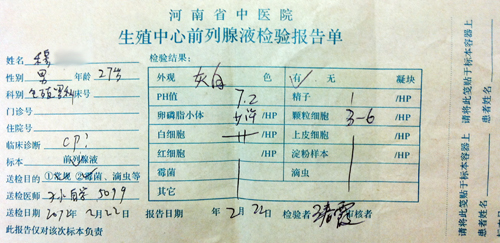 河南省中医院
生殖中心前列腺液检验报告单
姓名
性别 男 年龄 27岁
科别 生殖男科 床号
门诊号
住院号
临床诊断 CP?
标本 前列腺液
送检目的 ①常规 ②霉菌、滴虫等
送检医师 5099
送检日期 2012年2月22日
检验结果:
外观 灰白 色 有/无 凝块
PH值 7.2 精子 /HP
卵磷脂小体 /HP 颗粒细胞 3-6 /HP
白细胞 /HP 上皮细胞 /HP
红细胞 /HP 淀粉样本 /HP
霉菌 滴虫
其它
报告日期 年2月22日 检验者 审核者
此报告仅对该次标本负责
请将此笺贴于标本容器上
患者姓名
请将此笺贴于标本容器上
患者姓名